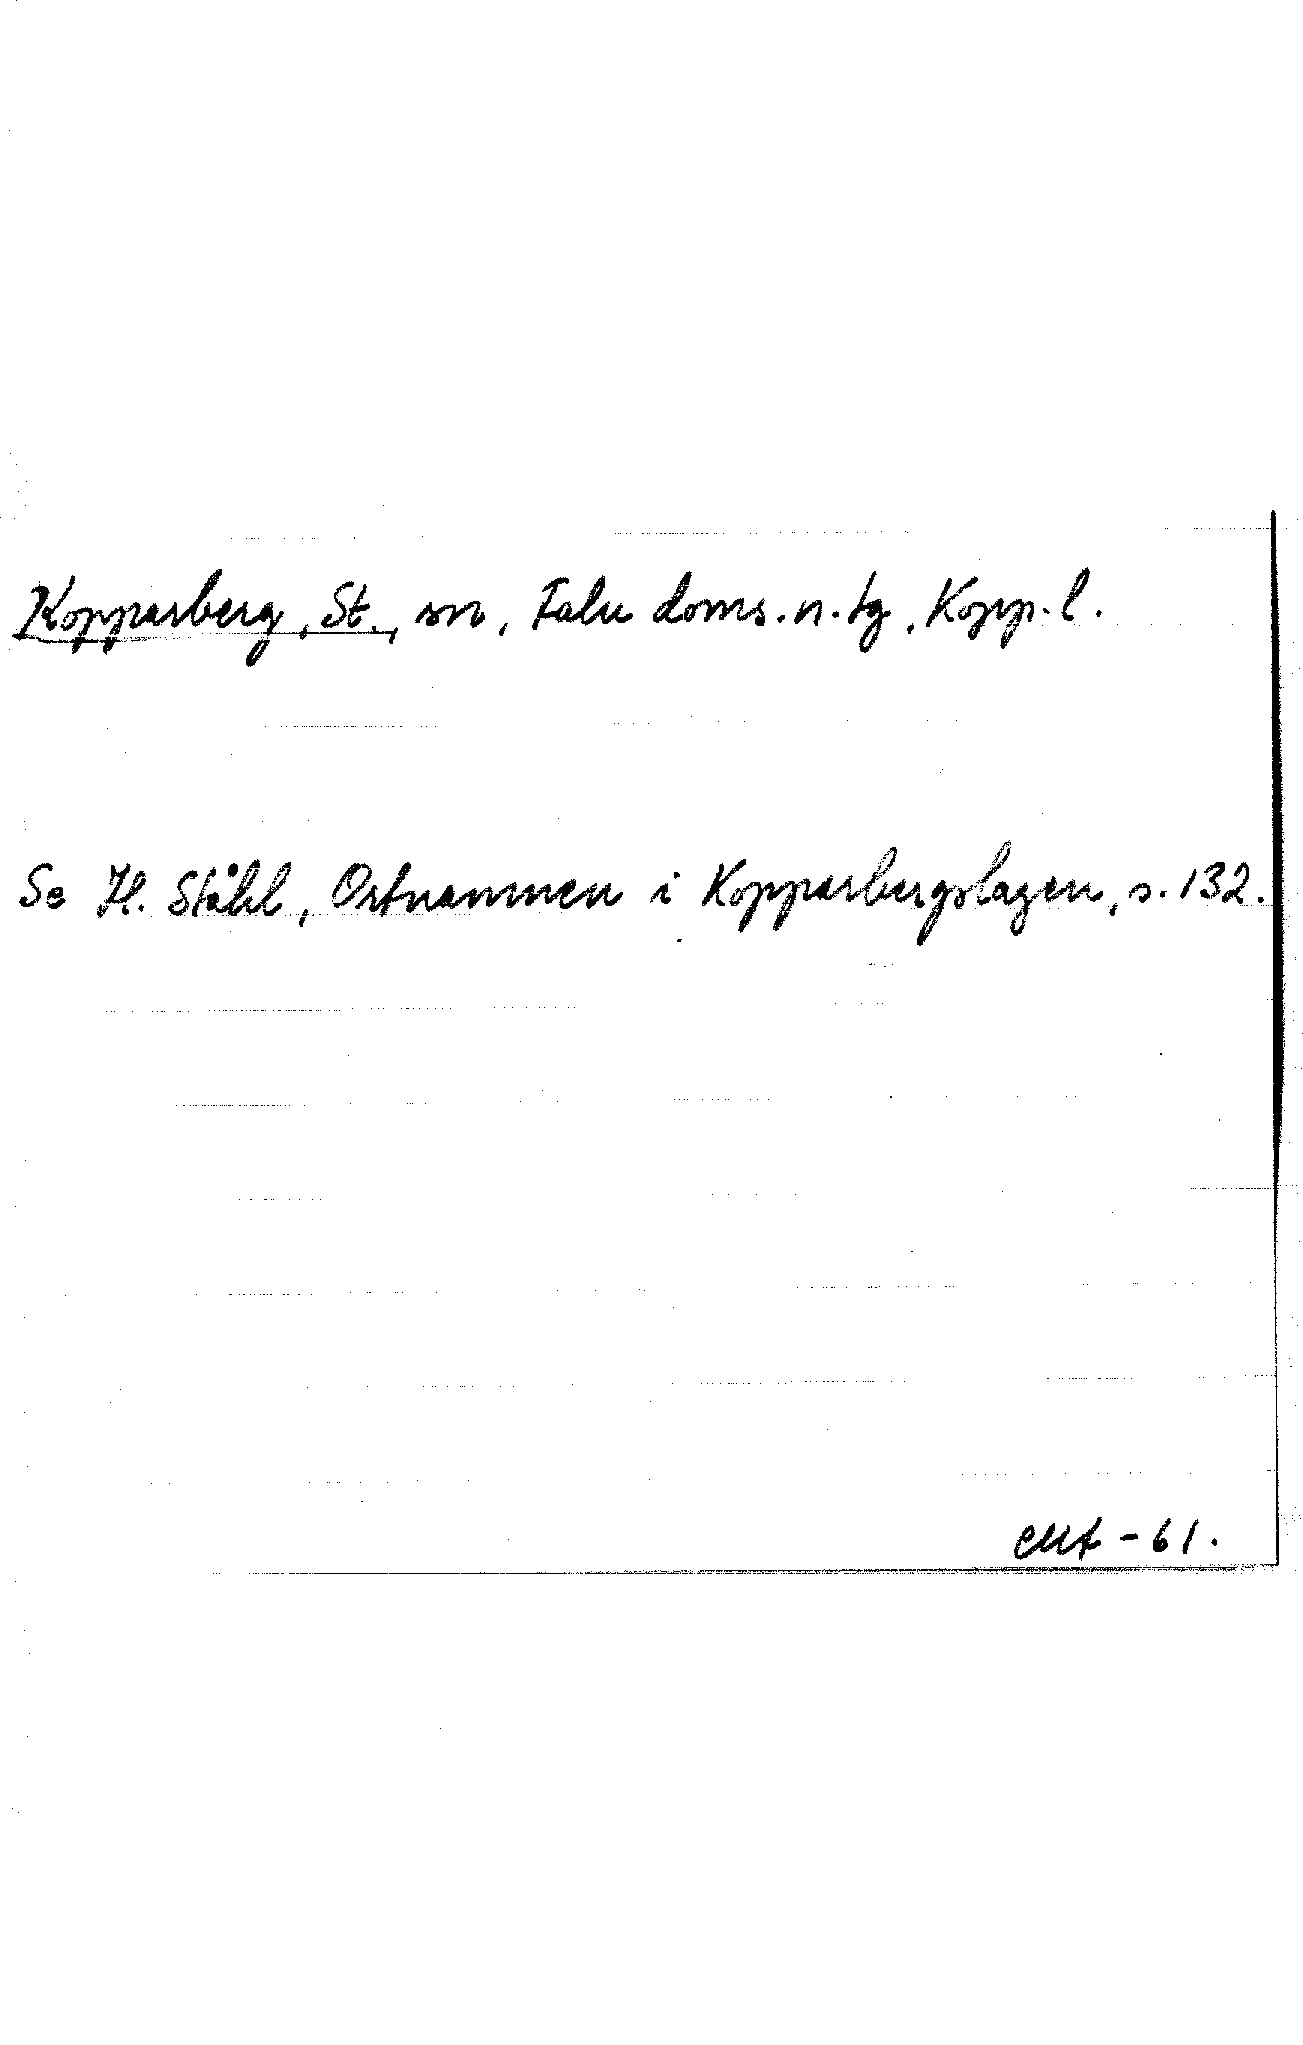 Kopparberg, St., sn, Falu doms.n.tg, Kopp.l.
Se H. Ståhl, Ortnamnen i Kopparbergslagen, s.132.
-61.